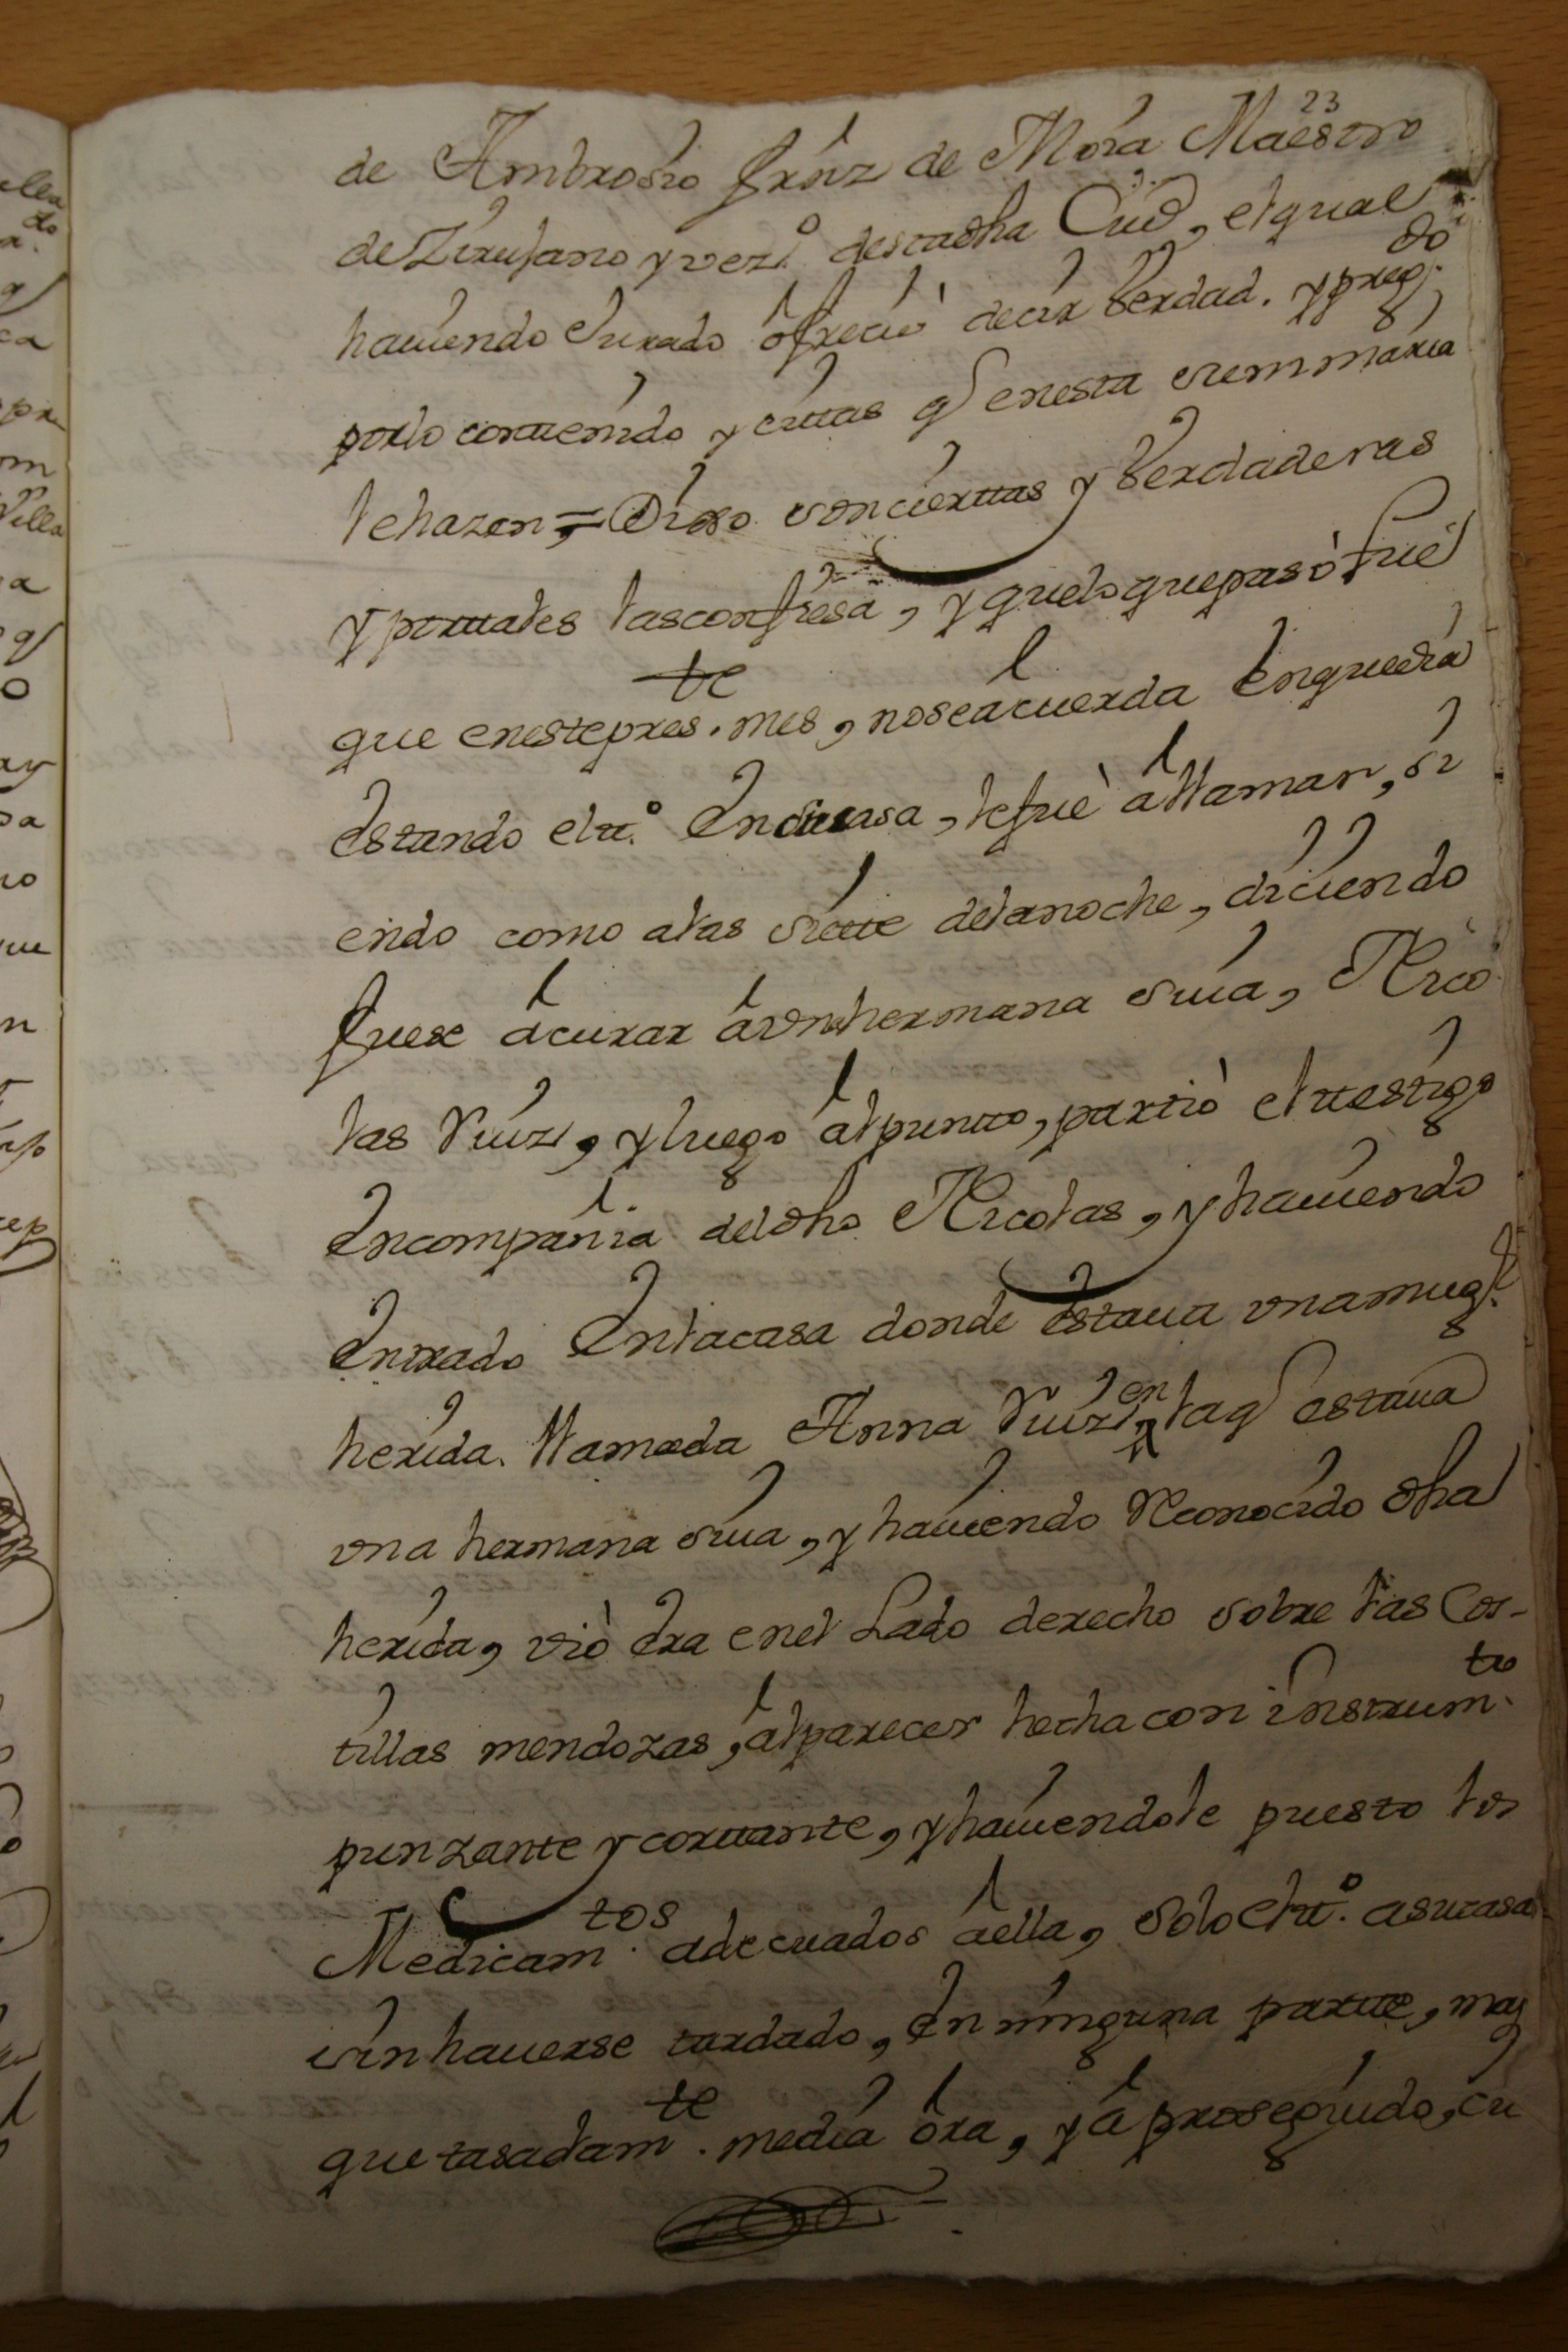 23
de Ambrosio frnz de Mora Maestro
de Zirujano y vez.º desta dha Ciud, el qual
hauiendo Jurado ofreciò decir Verdad. y preg.do
por lo conttenido y cittas q en esta summaria
le hazen = Dixo son ciertas y Verdaderas
y por ttales las confiesa, y que lo que pasò fuè
que en este pres.te mes, no se acuerda En que dia
Estando el tt.º En su casa, le fuè a llamar, si
endo como a las siette de la noche, diciendo
fuese a curar a vn hermana suia, Nico
las Ruiz, y luego al puntto, partiò el ttestigo
En compania del dho Nicolas, y hauiendo
Entrado En la casa donde Estaua vna mug.r
herida. llamada Anna Ruiz, en la q estaua
vna hermana suia, y hauiendo Reconocido dha
herida, viò Era en el Lado derecho sobre las Cos-
tillas mendozas, al parecer hecha con instrum.to
punzante y corttante, y hauiendole puesto los
Medicam.tos adecuados a ella, Solo el tt.º a su casa
sin hauerse tardado, En ninguna partte, mas
que tasadam.te media ora, y a proseguido, cu